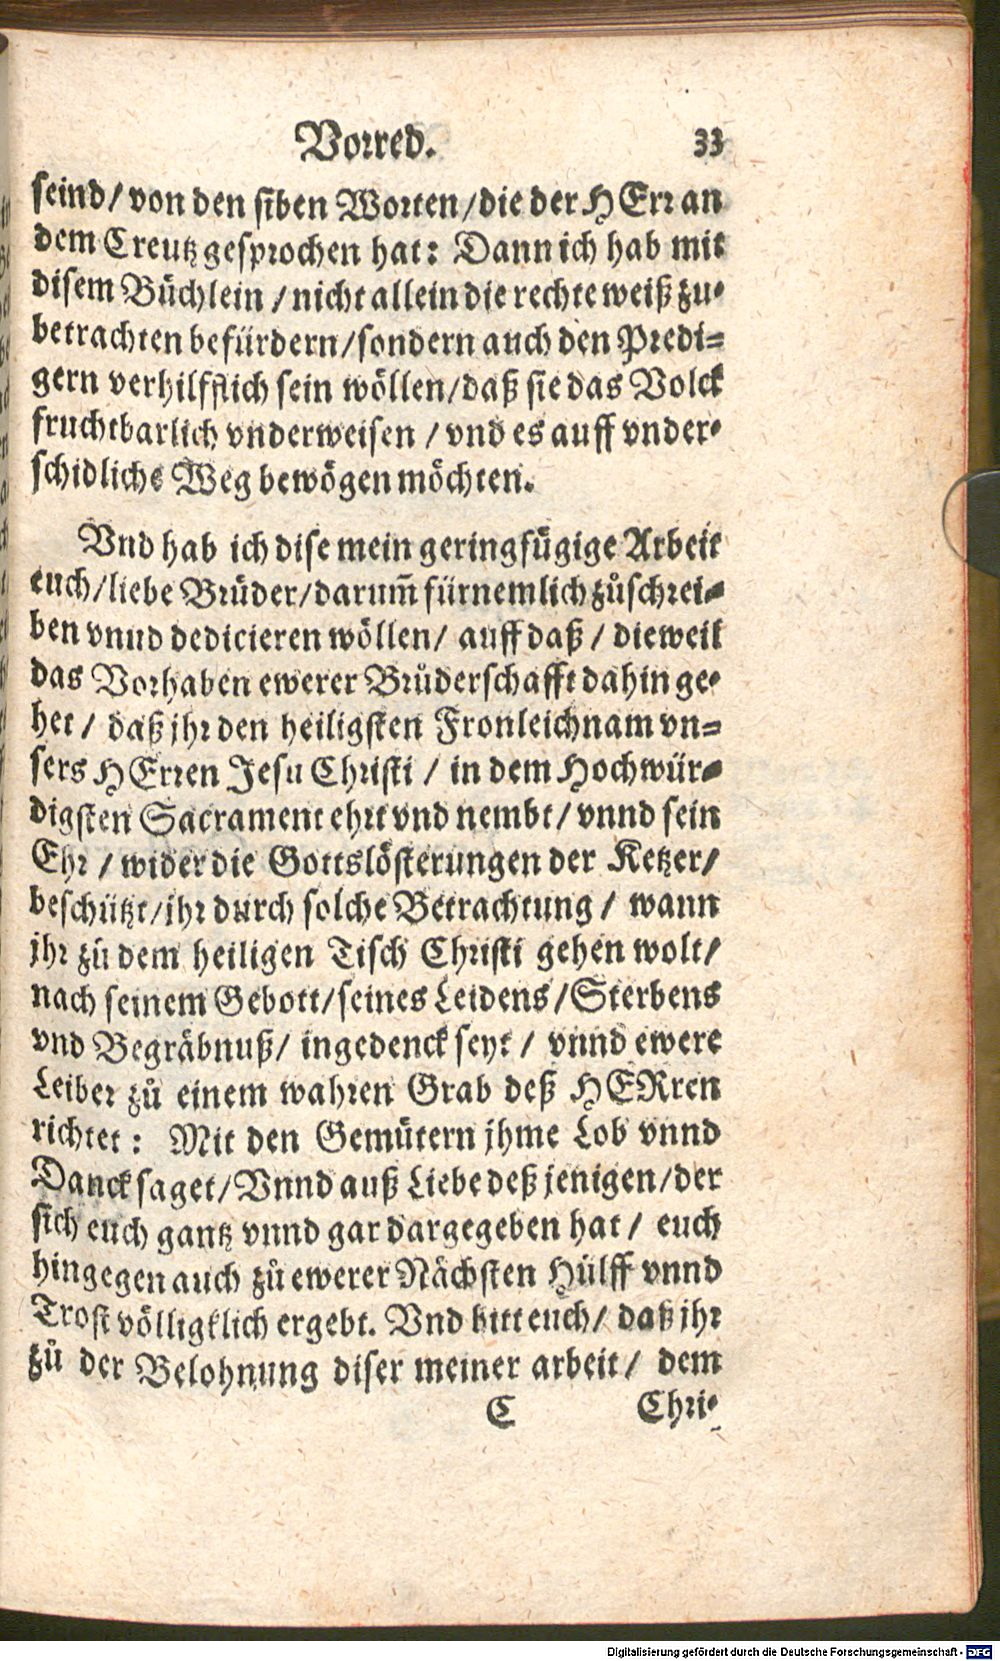 Vorred. 33
seind/ von den siben Worten/die der HErr an
dem Creutz gesprochen hat: Dann ich hab mit
disem Büchlein / nicht allein die rechte weiß zu-
betrachten befürdern/sondern auch den Predi-
gern verhilfflich sein wöllen/daß sie das Volck
fruchtbarlich vnderweisen / vnd es auff vnder-
schidliche Weg bewögen möchten.
Vnd hab ich dise mein geringfügige Arbeit
euch/liebe Brüder/darum̃ fürnemlich zůschrei-
ben vnnd dedicieren wöllen/ auff daß / dieweil
das Vorhaben ewerer Brůderschafft dahin ge-
het / daß jhr den heiligsten Fronleichnam vn-
sers HErren Jesu Christi / in dem Hochwür-
digsten Sacrament ehrt vnd nembt/ vnnd sein
Ehr / wider die Gottslösterungen der Ketzer/
beschützt/jhr durch solche Betrachtung / wann
jhr zů dem heiligen Tisch Christi gehen wolt/
nach seinem Gebott/seines Leidens/Sterbens
vnd Begräbnuß/ ingedenck seyt / vnnd ewere
Leiber zů einem wahren Grab deß HERren
richtet: Mit den Gemütern jhme Lob vnnd
Danck saget/Vnnd auß Liebe deß jenigen/der
sich euch gantz vnnd gar dargegeben hat / euch
hingegen auch zů ewerer Nächsten Hülff vnnd
Trost völligklich ergebt. Vnd bitt euch/ daß jhr
zů der Belohnung diser meiner arbeit/ dem
C Chri-
Digitalisierung gefördert durch die Deutsche Forschungsgemeinschaft - DFG